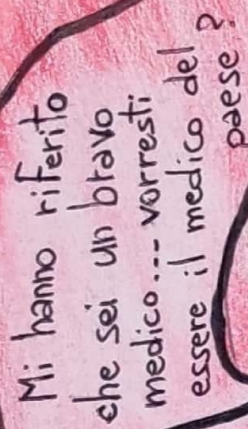 Mi hanno riferito
che sei un bravo
medico... vorresti
essere il medico del
paese?